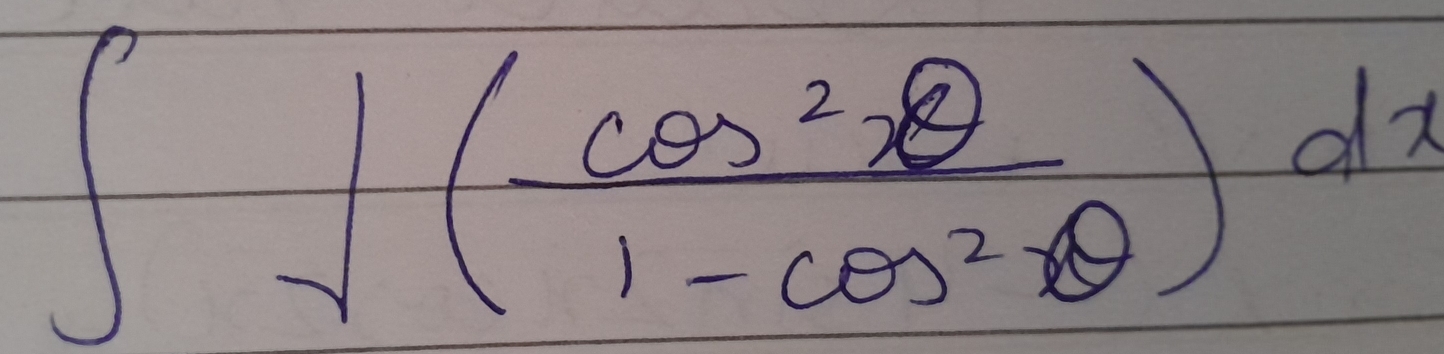 ∫ √( cos² θ / 1 - cos² θ ) dx